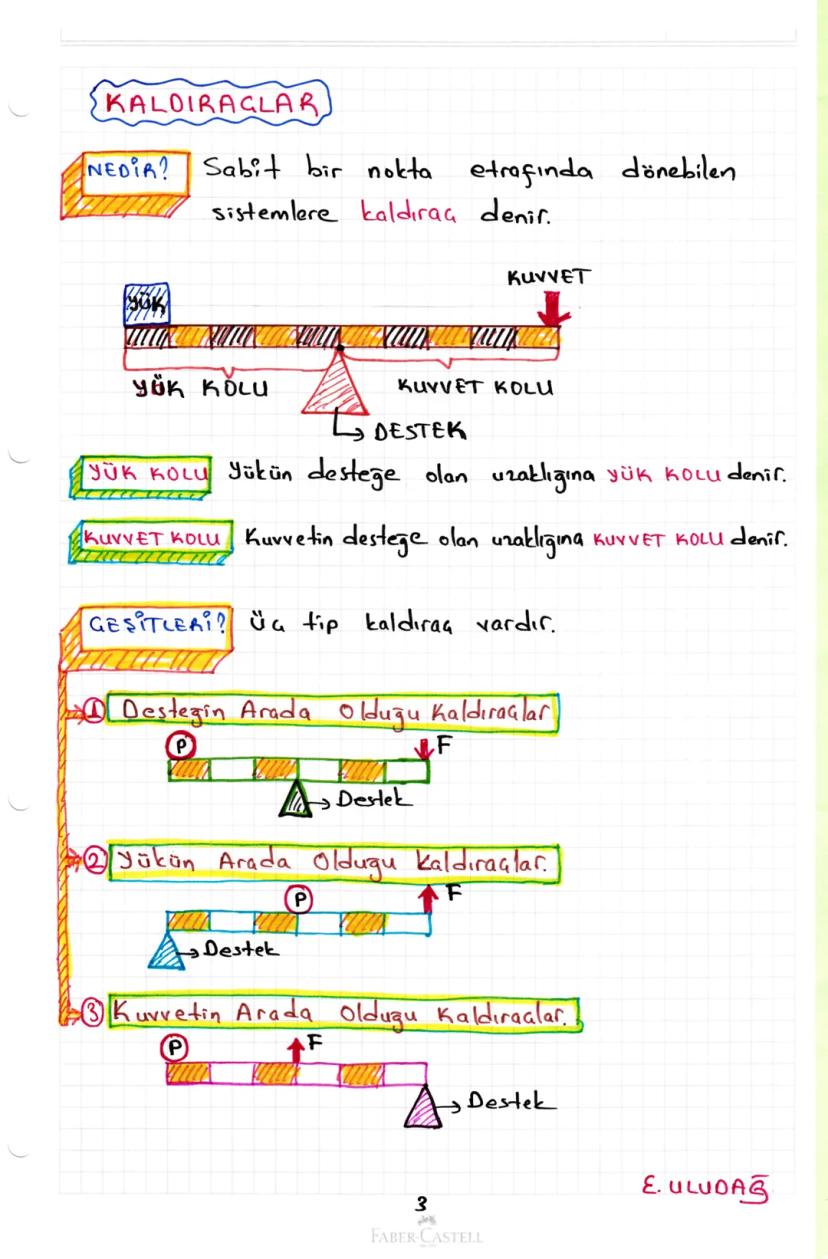 KALDIRAÇLAR
NEDİR? Sabit bir nokta etrafında dönebilen
sistemlere kaldıraç denir.
KUVVET
YÜK
YÜK KOLU KUVVET KOLU
DESTEK
YÜK KOLU Yükün desteğe olan uzaklığına YÜK KOLU denir.
KUVVET KOLU Kuvvetin desteğe olan uzaklığına KUVVET KOLU denir.
ÇEŞİTLERİ? Üç tip kaldıraç vardır.
1 Desteğin Arada Olduğu Kaldıraçlar
P F
Destek
2 Yükün Arada Olduğu Kaldıraçlar.
P F
Destek
3 Kuvvetin Arada Olduğu Kaldıraçlar.
P F
Destek
E. ULUDAĞ
3
FABER-CASTELL